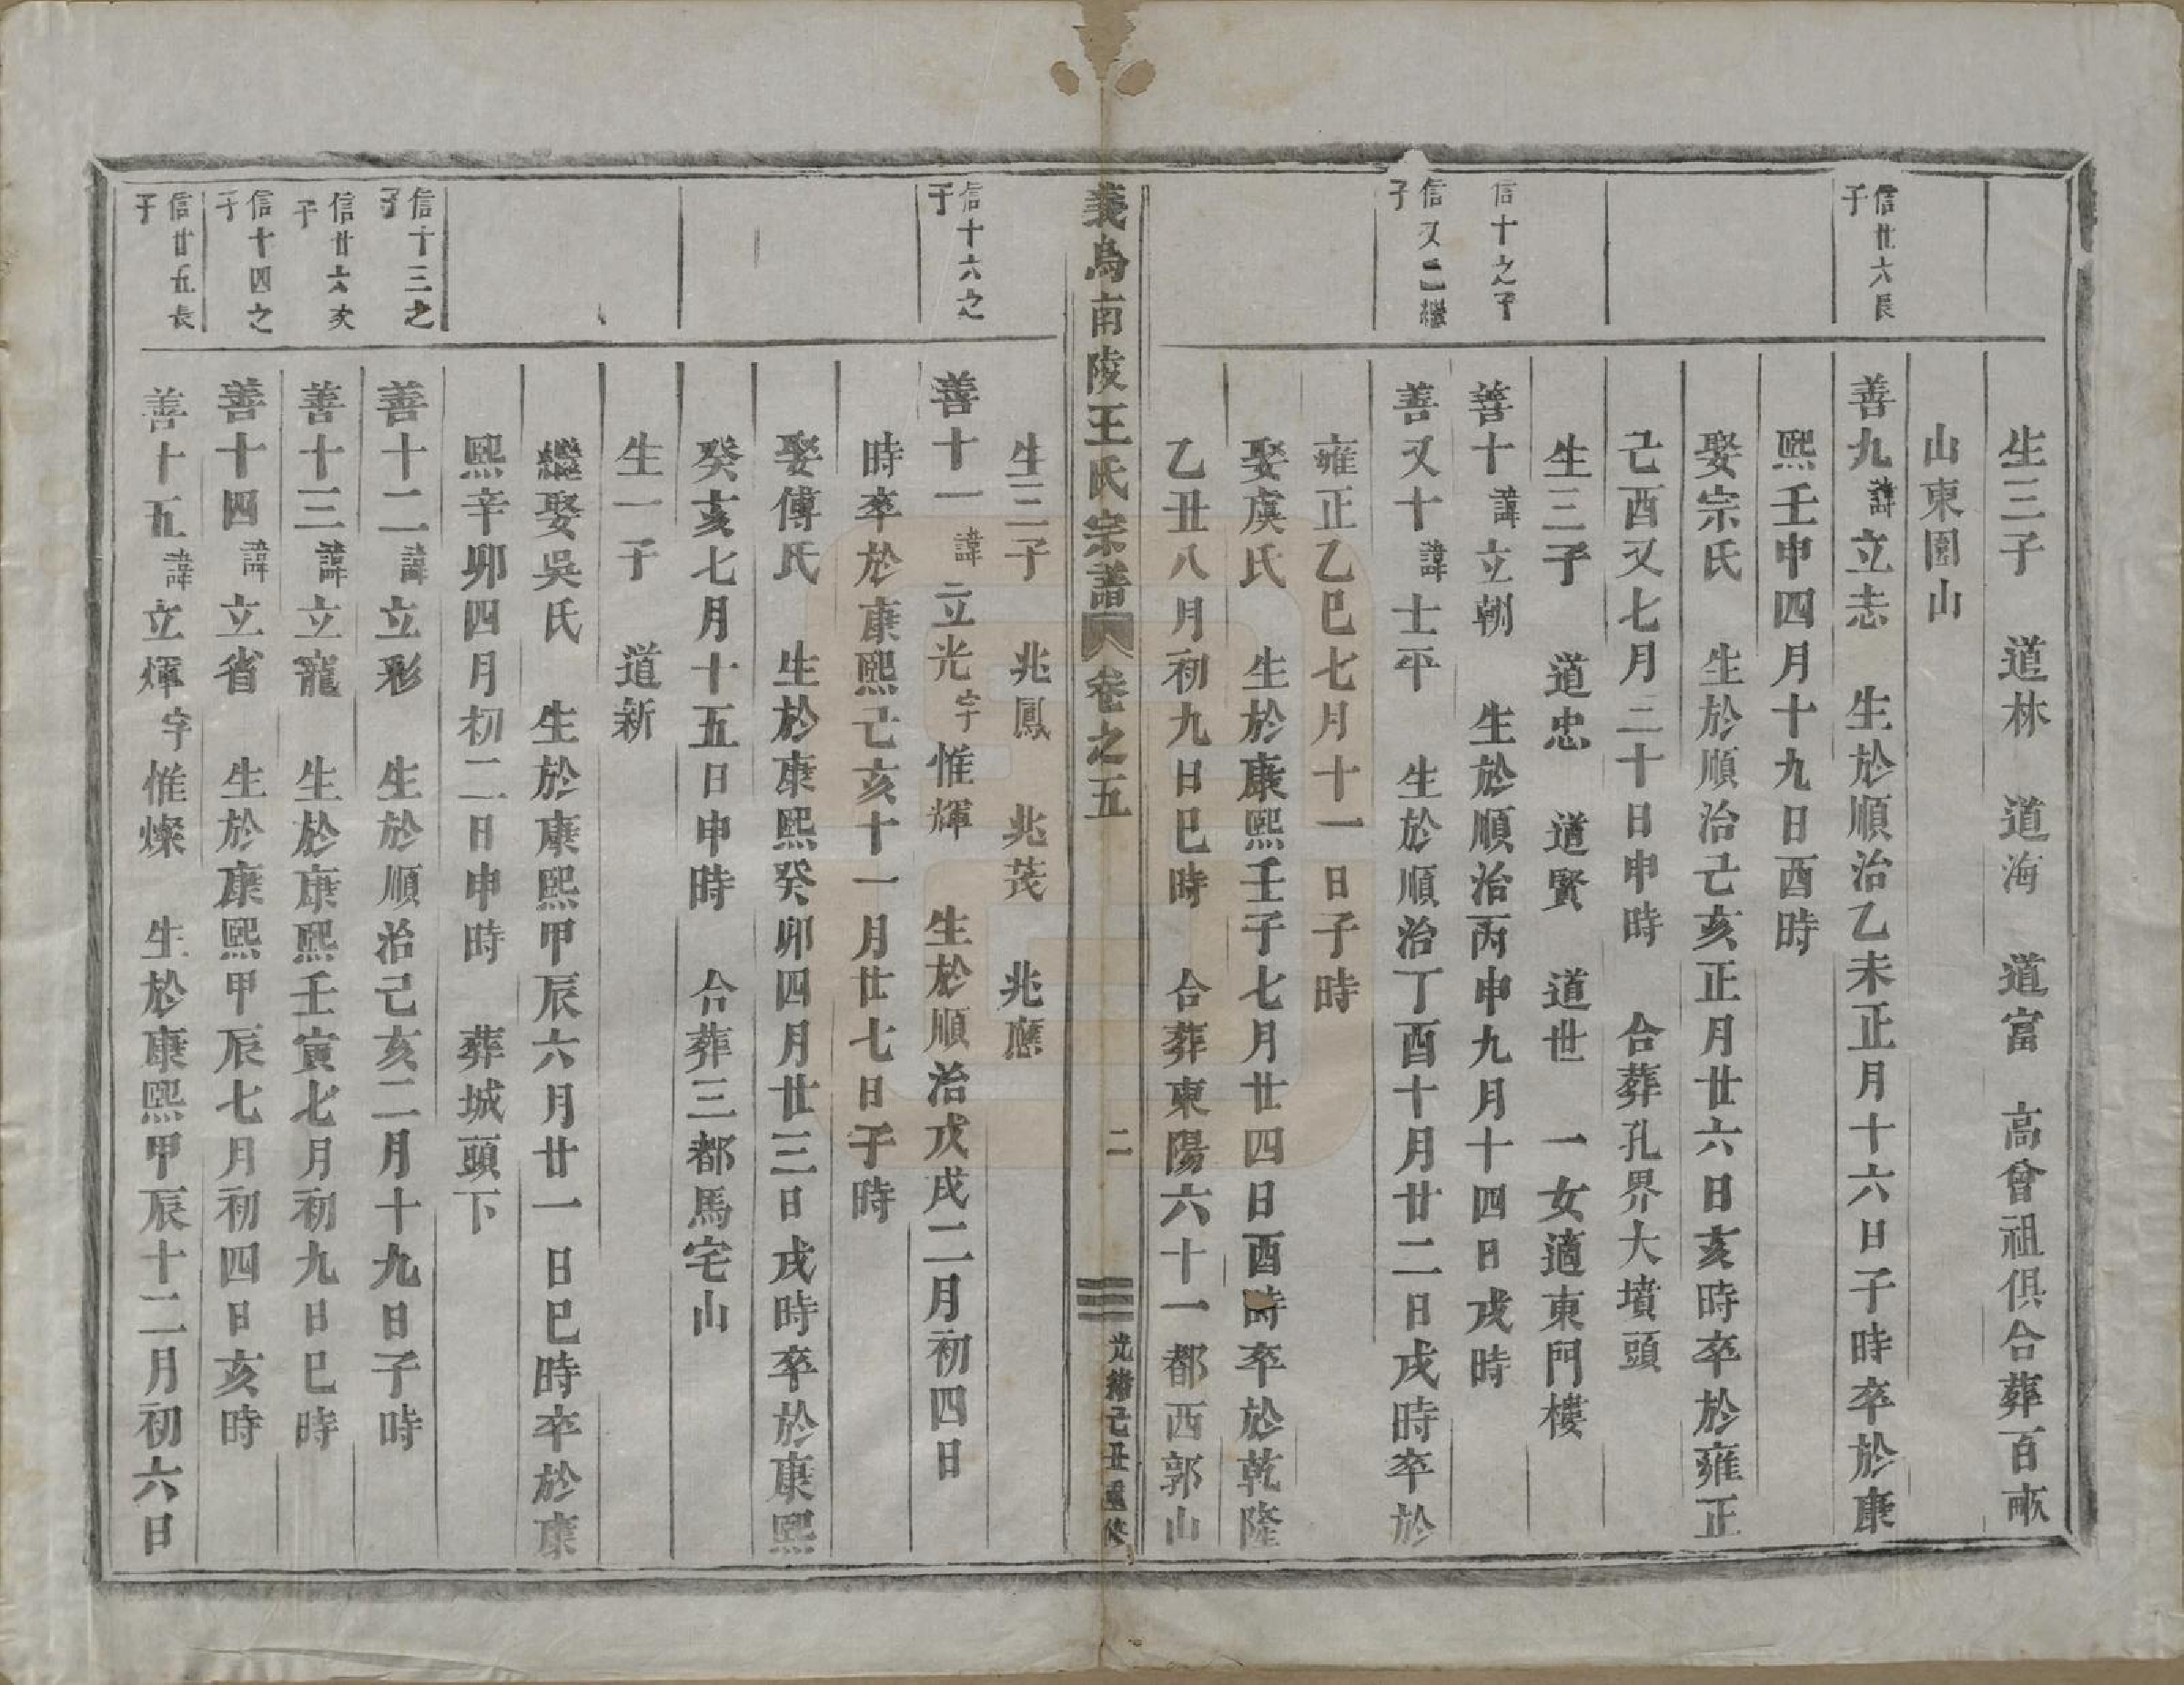 生三子　道林　道海　道富　高曾祖俱合葬百畝
山東園山
信廿六長子
善九諱立志　生於順治乙未正月十六日子時卒於康
熙壬申四月十九日酉時
娶宗氏　生於順治己亥正月廿六日亥時卒於雍正
己酉又七月二十日申時　合葬孔界大墳頭
生三子　道忠　道賢　道世　一女適東門樓
信十之子
善十諱立朝　生於順治丙申九月十四日戌時
信又二繼子
善又十諱士平　生於順治丁酉十月廿二日戌時卒於
雍正乙巳七月十一日子時
娶虞氏　生於康熙壬子七月廿四日酉時卒於乾隆
乙丑八月初九日巳時　合葬東陽六十一都西郭山
義烏南陵王氏宗譜　卷之五　二　光緒己丑重修
生三子　兆鳳　兆茂　兆應
信十六之子
善十一諱立光字惟輝　生於順治戊戌二月初四日
時卒於康熙己亥十一月廿七日子時
娶傅氏　生於康熙癸卯四月廿三日戌時卒於康熙
癸亥七月十五日申時　合葬三都馬宅山
生一子　道新
繼娶吳氏　生於康熙甲辰六月廿一日巳時卒於康
熙辛卯四月初二日申時　葬城頭下
信十三之子
善十二諱立彩　生於順治己亥二月十九日子時
信廿六次子
善十三諱立寵　生於康熙壬寅七月初九日巳時
信十四之子
善十四諱立省　生於康熙甲辰七月初四日亥時
信廿五長子
善十五諱立煇字惟燦　生於康熙甲辰十二月初六日